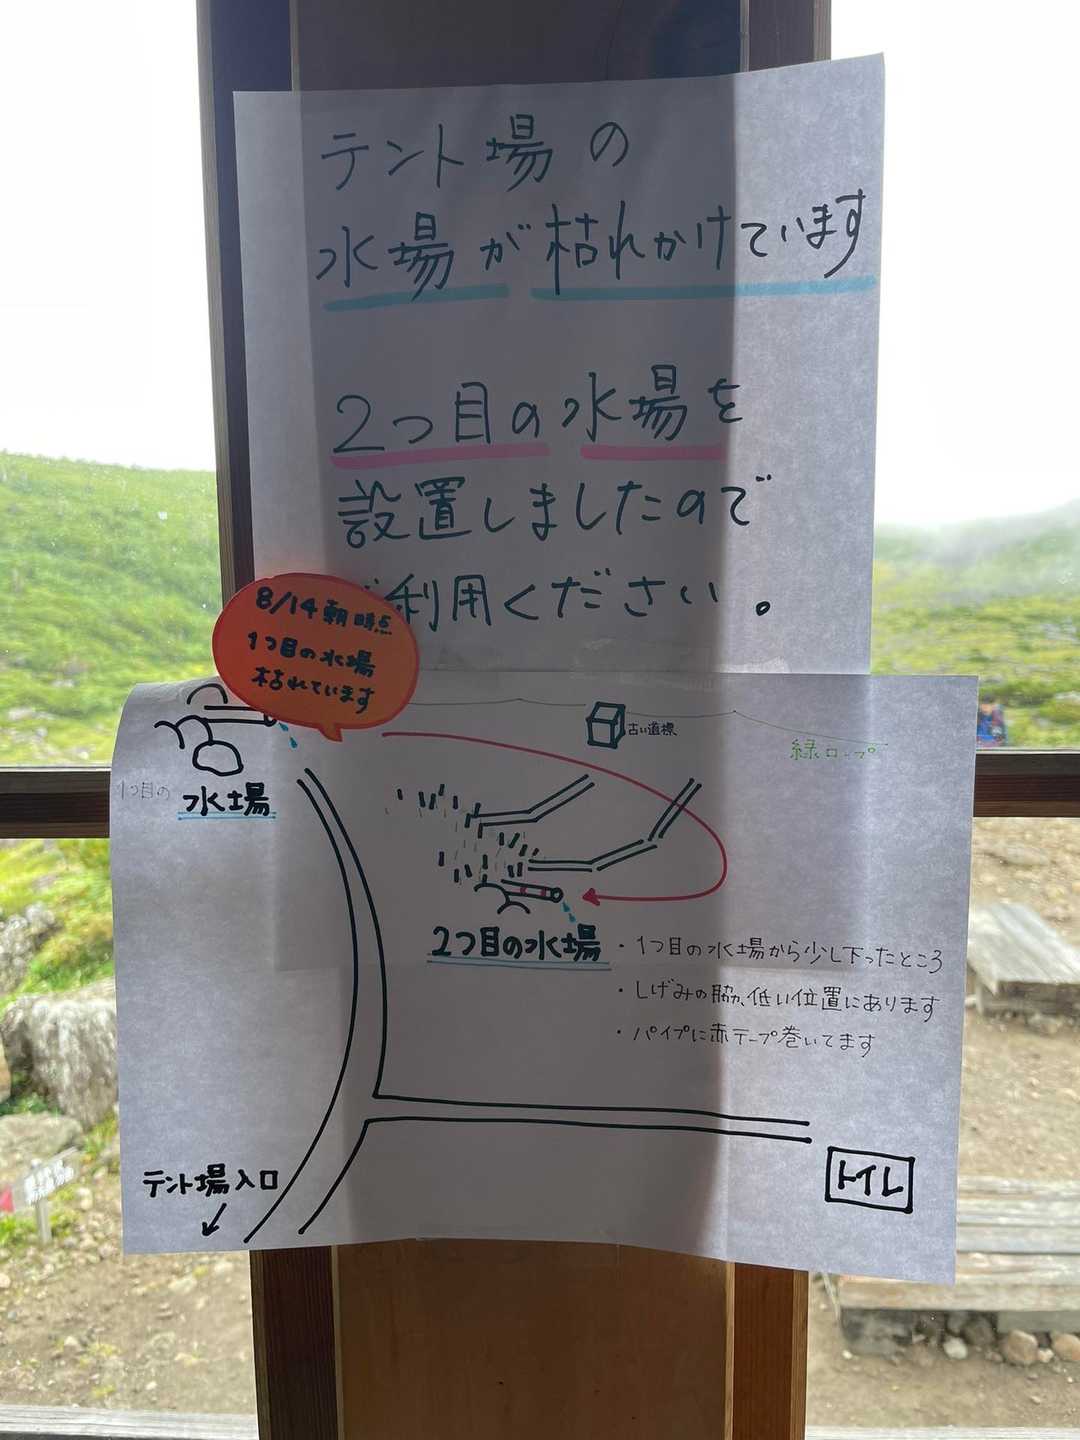 テント場の
水場が枯れかけています
2つ目の水場を
設置しましたので
ご利用ください。
8/14朝時点
1つ目の水場
枯れています
古い道標
緑ロープ
1つ目の水場
2つ目の水場
・1つ目の水場から少し下ったところ
・しげみの脇、低い位置にあります
・パイプに赤テープ巻いてます
テント場入口
トイレ